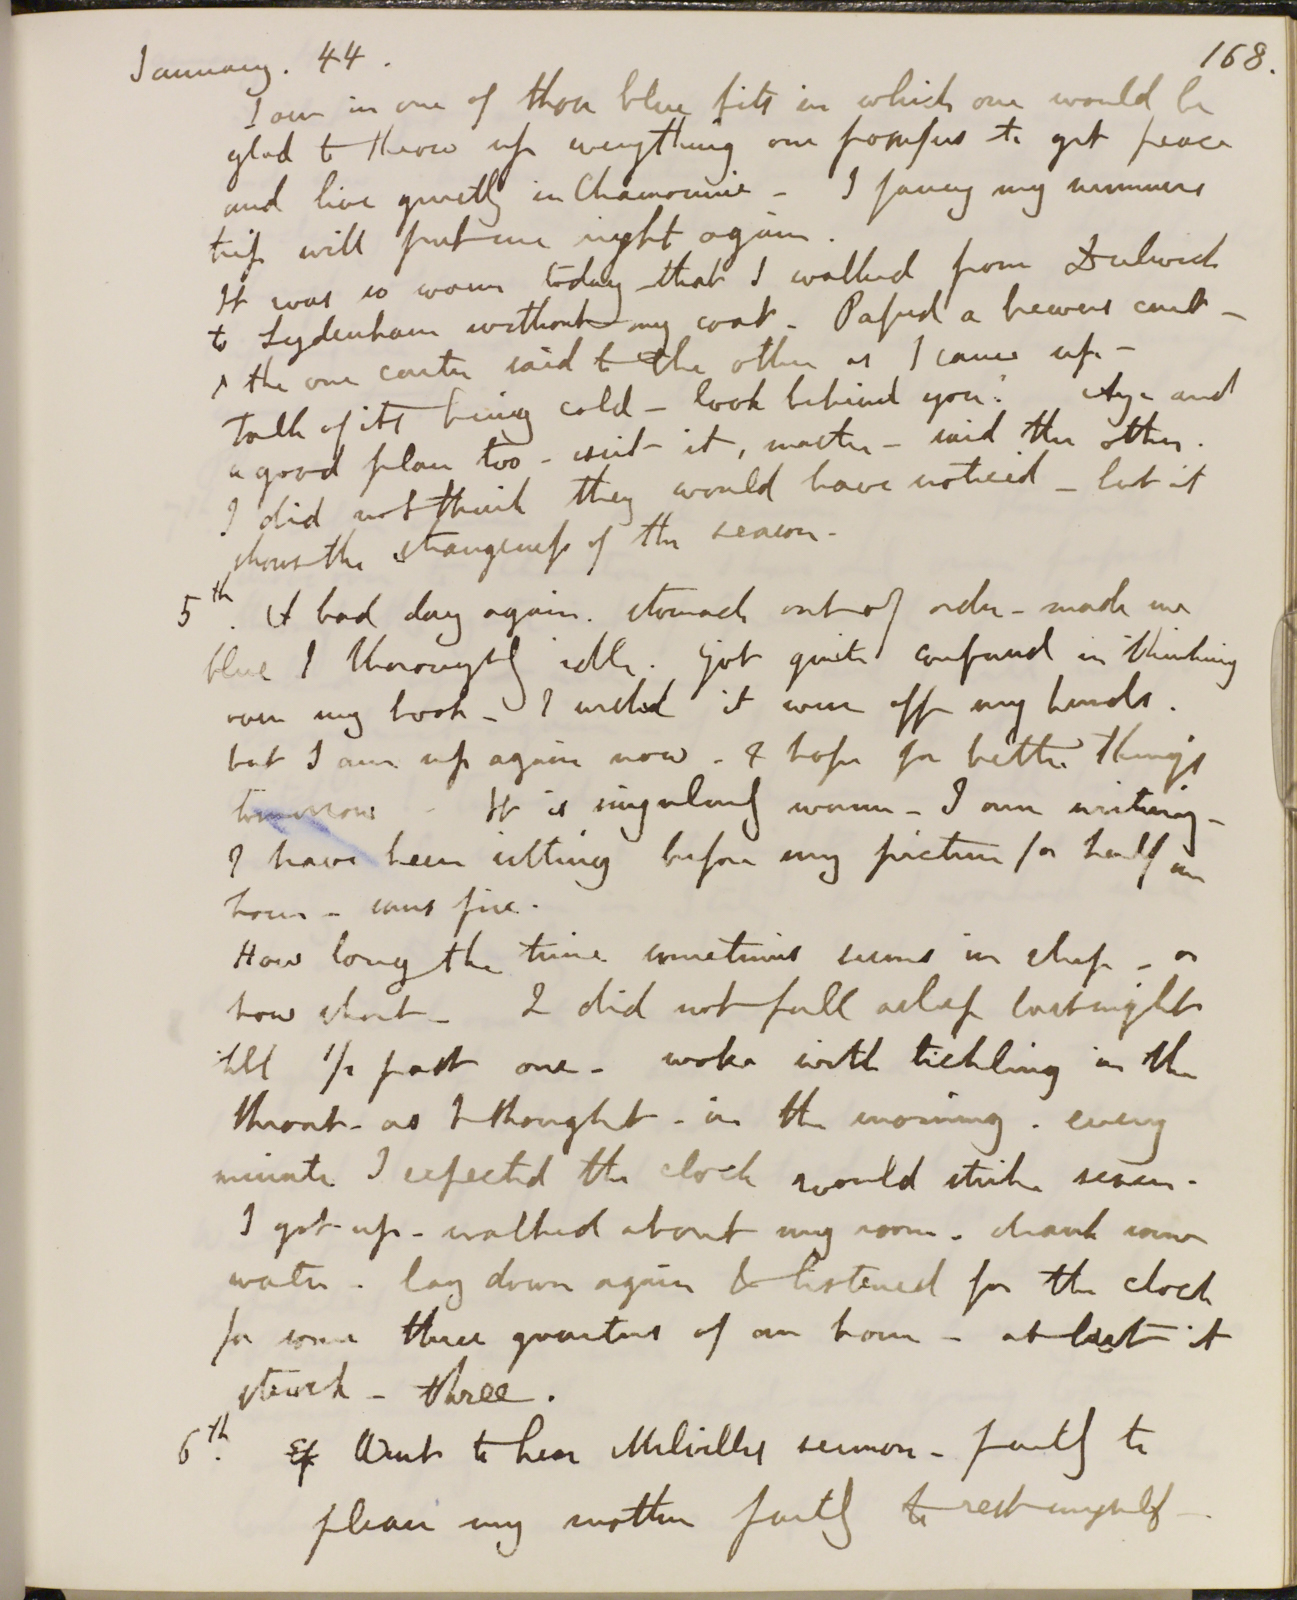 January. 44.
168.
I am in one of those blue fits in which one would be
glad to throw up everything one possesses to get peace
and live quietly in Chamounix - I fancy my summers
trip will put me right again.
It was so warm today that I walked from Dulwich
to Sydenham without my coat - Passed a brewers cart -
& the one carter said to the other as I came up -
Talk of its being cold - look behind you! Aye and
a good plan too - isnt it, master - said the other.
I did not think they would have noticed - but it
shows the strangeness of the season.
5th. A bad day again. stomach out of order - made me
blue & thoroughly idle. Got quite confused in thinking
over my book - I wished it were off my hands.
but I am up again now - & hope for better things
tomorrow - It is singularly warm - I am writing -
& have been sitting before my picture for half an
hour - sans fire.
How long the time sometimes seems in sleep - or
how short - I did not fall asleep last night
till 1/2 past one - woke with tickling in the
throat - as I thought - in the morning. every
minute I expected the clock would strike seven.
I got up - walked about my room - drank some
water - lay down again & listened for the clock
for some three quarters of an hour - at last it
struck - three.
6th. Went to hear Melvilles sermon - partly to
please my mother partly to rest myself -